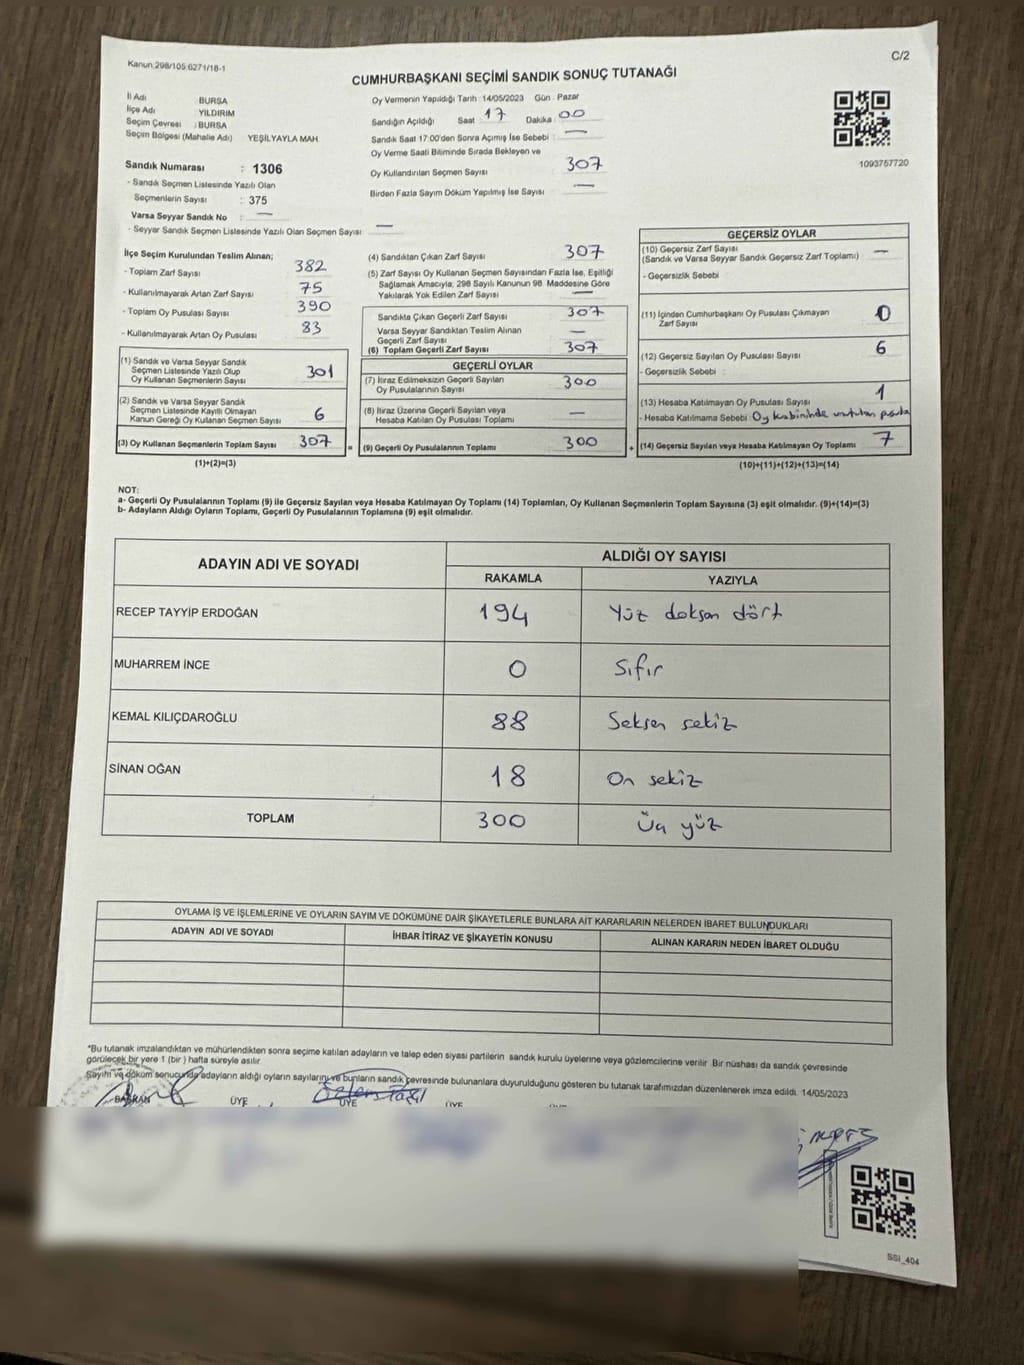 Kanun:298/105.6271/18-1
C/2
CUMHURBAŞKANI SEÇİMİ SANDIK SONUÇ TUTANAĞI
İl Adı : BURSA
İlçe Adı : YILDIRIM
Seçim Çevresi : BURSA
Seçim Bölgesi (Mahalle Adı) YEŞİLYAYLA MAH.
Sandık Numarası : 1306
- Sandık Seçmen Listesinde Yazılı Olan
Seçmenlerin Sayısı : 375
Varsa Seyyar Sandık No : —
- Seyyar Sandık Seçmen Listesinde Yazılı Olan Seçmen Sayısı : —
Oy Vermenin Yapıldığı Tarih : 14/05/2023 Gün : Pazar
Sandığın Açıldığı Saat : 17 Dakika : 00
Sandık Saat 17:00'den Sonra Açımış İse Sebebi : —
Oy Verme Saati Bitiminde Sırada Bekleyen ve
Oy Kullandırılan Seçmen Sayısı : 307
Birden Fazla Sayım Döküm Yapılmış İse Sayısı : —
1093757720
İlçe Seçim Kurulundan Teslim Alınan;
- Toplam Zarf Sayısı : 382
- Kullanılmayarak Artan Zarf Sayısı : 75
- Toplam Oy Pusulası Sayısı : 390
- Kullanılmayarak Artan Oy Pusulası : 83
(1) Sandık ve Varsa Seyyar Sandık
Seçmen Listesinde Yazılı Olup
Oy Kullanan Seçmenlerin Sayısı 301
(2) Sandık ve Varsa Seyyar Sandık
Seçmen Listesinde Kayıtlı Olmayan
Kanun Gereği Oy Kullanan Seçmen Sayısı : 6
(3) Oy Kullanan Seçmenlerin Toplam Sayısı : 307
(1)+(2)=(3)
(4) Sandıktan Çıkan Zarf Sayısı : 307
(5) Zarf Sayısı Oy Kullanan Seçmen Sayısından Fazla İse, Eşitliği
Sağlamak Amacıyla; 298 Sayılı Kanunun 98. Maddesine Göre
Yakılarak Yok Edilen Zarf Sayısı : —
Sandıkta Çıkan Geçerli Zarf Sayısı : 307
Varsa Seyyar Sandıktan Teslim Alınan
Geçerli Zarf Sayısı : —
(6) Toplam Geçerli Zarf Sayısı : 307
GEÇERLİ OYLAR
(7) İtiraz Edilmeksizin Geçerli Sayılan
Oy Pusulalarının Sayısı : 300
(8) İtiraz Üzerine Geçerli Sayılan veya
Hesaba Katılan Oy Pusulası Toplamı : —
= (9) Geçerli Oy Pusulalarının Toplamı : 300
GEÇERSİZ OYLAR
(10) Geçersiz Zarf Sayısı
(Sandık ve Varsa Seyyar Sandık Geçersiz Zarf Toplamı) : —
- Geçersizlik Sebebi
(11) İçinden Cumhurbaşkanı Oy Pusulası Çıkmayan
Zarf Sayısı : 0
(12) Geçersiz Sayılan Oy Pusulası Sayısı : 6
- Geçersizlik Sebebi :
(13) Hesaba Katılmayan Oy Pusulası Sayısı : 1
- Hesaba Katılmama Sebebi : Oy kabininde unutulan pusula
+ (14) Geçersiz Sayılan veya Hesaba Katılmayan Oy Toplamı : 7
(10)+(11)+(12)+(13)=(14)
NOT:
a- Geçerli Oy Pusulalarının Toplamı (9) ile Geçersiz Sayılan veya Hesaba Katılmayan Oy Toplamı (14) Toplamları, Oy Kullanan Seçmenlerin Toplam Sayısına (3) eşit olmalıdır. (9)+(14)=(3)
b- Adayların Aldığı Oyların Toplamı, Geçerli Oy Pusulalarının Toplamına (9) eşit olmalıdır.
ADAYIN ADI VE SOYADI ALDIĞI OY SAYISI
RAKAMLA YAZIYLA
RECEP TAYYİP ERDOĞAN 194 Yüz doksan dört
MUHARREM İNCE 0 Sıfır
KEMAL KILIÇDAROĞLU 88 Seksen sekiz
SİNAN OĞAN 18 On sekiz
TOPLAM 300 Üç yüz
OYLAMA İŞ VE İŞLEMLERİNE VE OYLARIN SAYIM VE DÖKÜMÜNE DAİR ŞİKAYETLERLE BUNLARA AİT KARARLARIN NELERDEN İBARET BULUNDUKLARI
ADAYIN ADI VE SOYADI İHBAR İTİRAZ VE ŞİKAYETİN KONUSU ALINAN KARARIN NEDEN İBARET OLDUĞU
*Bu tutanak imzalandıktan ve mühürlendikten sonra seçime katılan adayların ve talep eden siyasi partilerin sandık kurulu üyelerine veya gözlemcilerine verilir. Bir nüshası da sandık çevresinde
görülecek bir yere 1 (bir ) hafta süreyle asılır.
Sayım ve döküm sonucunda adayların aldığı oyların sayılarını ve bunların sandık çevresinde bulunanlara duyurulduğunu gösteren bu tutanak tarafımızdan düzenlenerek imza edildi. 14/05/2023
BAŞKAN ÜYE ÜYE ÜYE
SSI_404